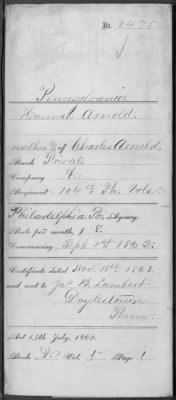 No. 8475
Pennsylvania
Hannah Arnold,
mother of Charles Arnold,
Rank Private
Company
Regiment 104th Pa. Vols.
Philadelphia Pa. Agency.
Rate per month, $ 8.
Commencing Sept. 1st 1862.
Certificate dated Nov. 18th 1863.
and sent to Jas. B. Lambert
Doylestown
Penn.
Act 14th July, 1862.
Book A. Vol. 5 Page 1